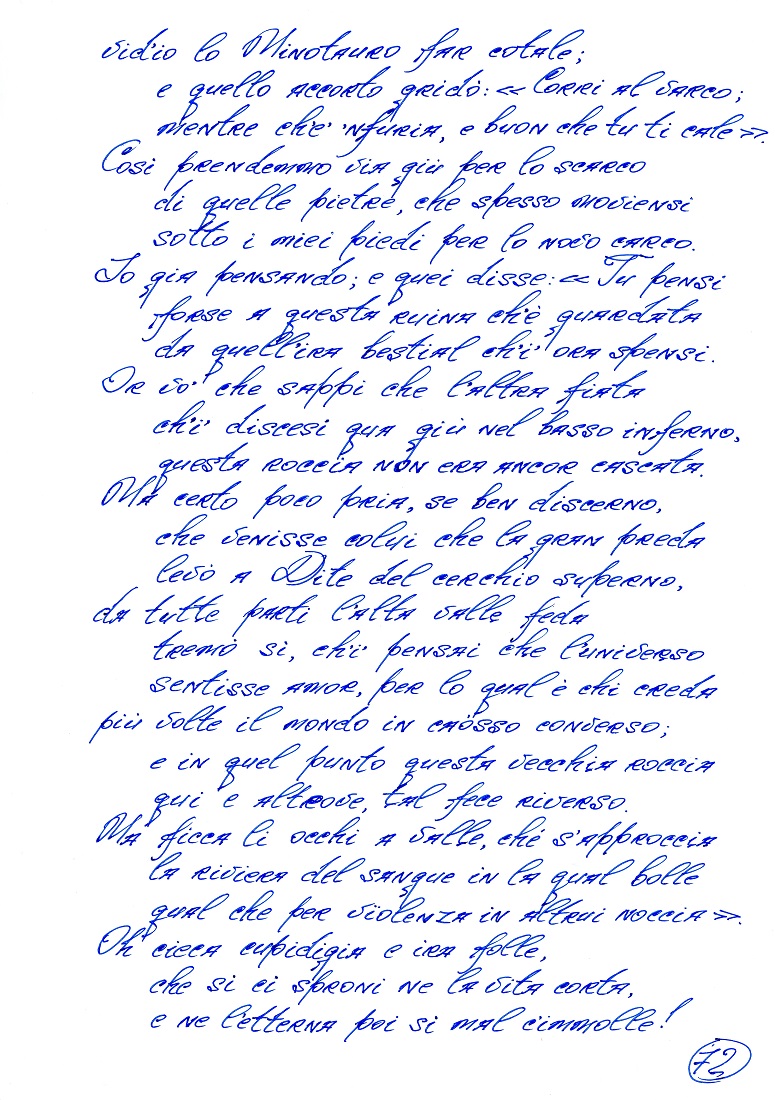 vid'io lo Minotauro far cotale;
e quello accorto gridò: « Corri al varco;
mentre ch'e' 'nfuria, e buon che tu ti cale ».
Così prendemmo via giù per lo scarco
di quelle pietre, che spesso moviensi
sotto i miei piedi per lo novo carco.
Io gia pensando; e quei disse: « Tu pensi
forse a questa ruina ch'è guardata
da quell'ira bestial ch'i' ora spensi.
Or vo' che sappi che l'altra fiata
ch'i' discesi qua giù nel basso inferno,
questa roccia non era ancor cascata.
Ma certo poco pria, se ben discerno,
che venisse colui che la gran preda
levò a Dite del cerchio superno,
da tutte parti l'alta valle feda
tremò si, ch'i' pensai che l'universo
sentisse amor, per lo qual è chi creda
più volte il mondo in caòsso converso;
e in quel punto questa vecchia roccia
qui e altrove, tal fece riverso.
Ma ficca li occhi a valle, ché s'approccia
la riviera del sangue in la qual bolle
qual che per violenza in altrui noccia ».
Oh cieca cupidigia e ira folle,
che si ci sproni ne la vita corta,
e ne l'etterna poi si mal c'immolle!
72